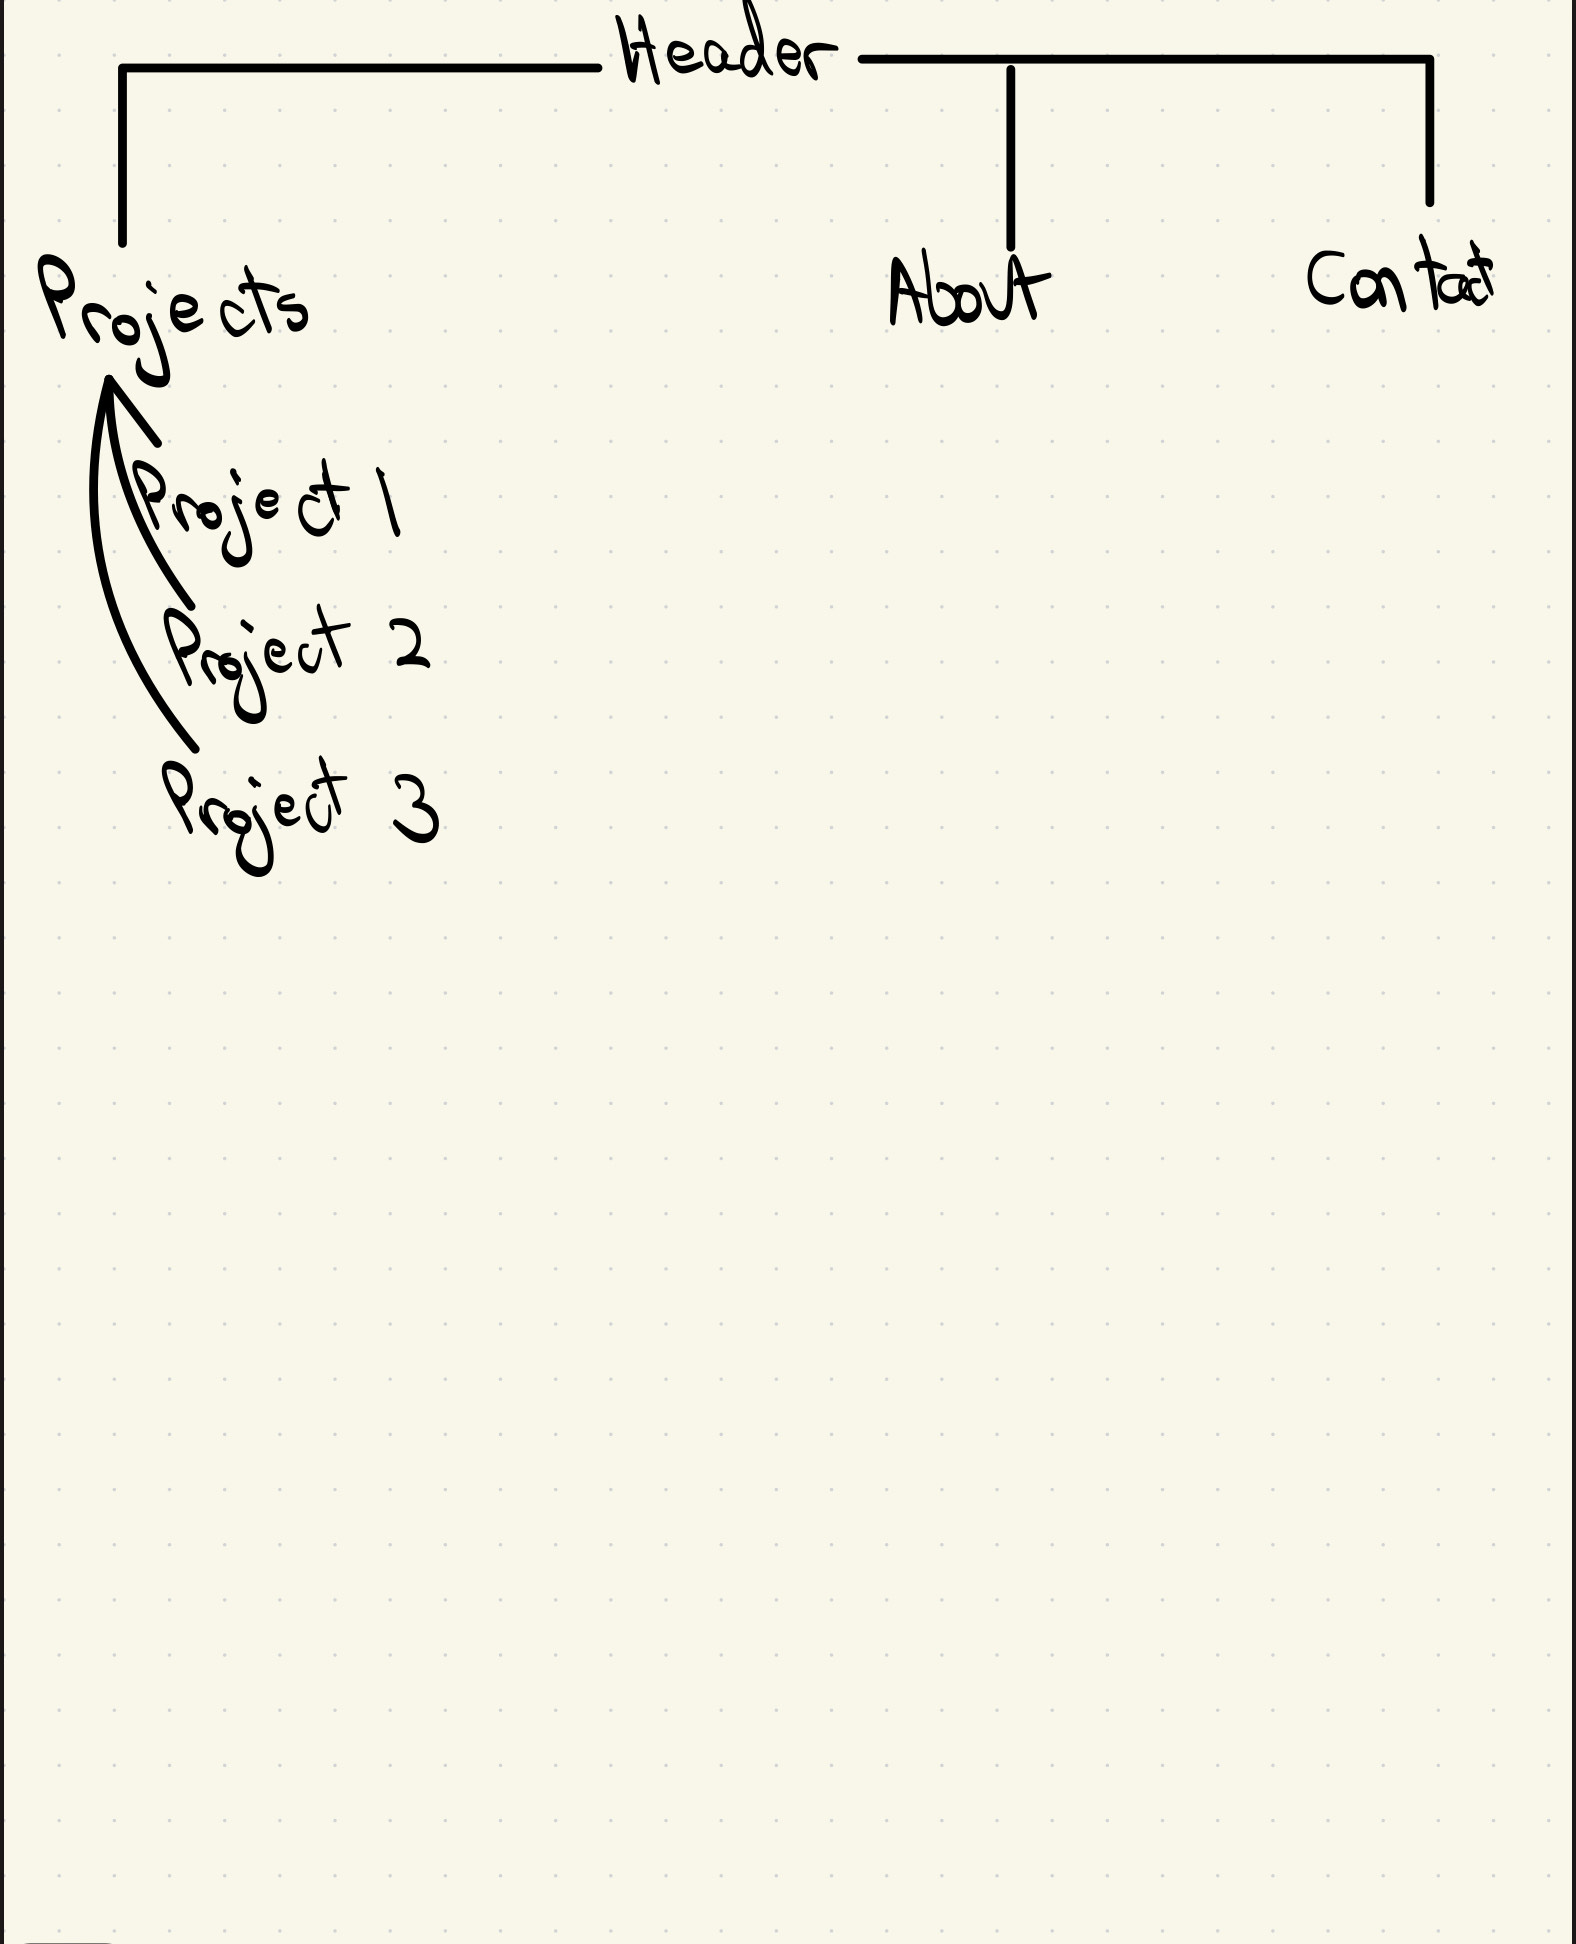 Header
Projects About Contact
Project 1
Project 2
Project 3